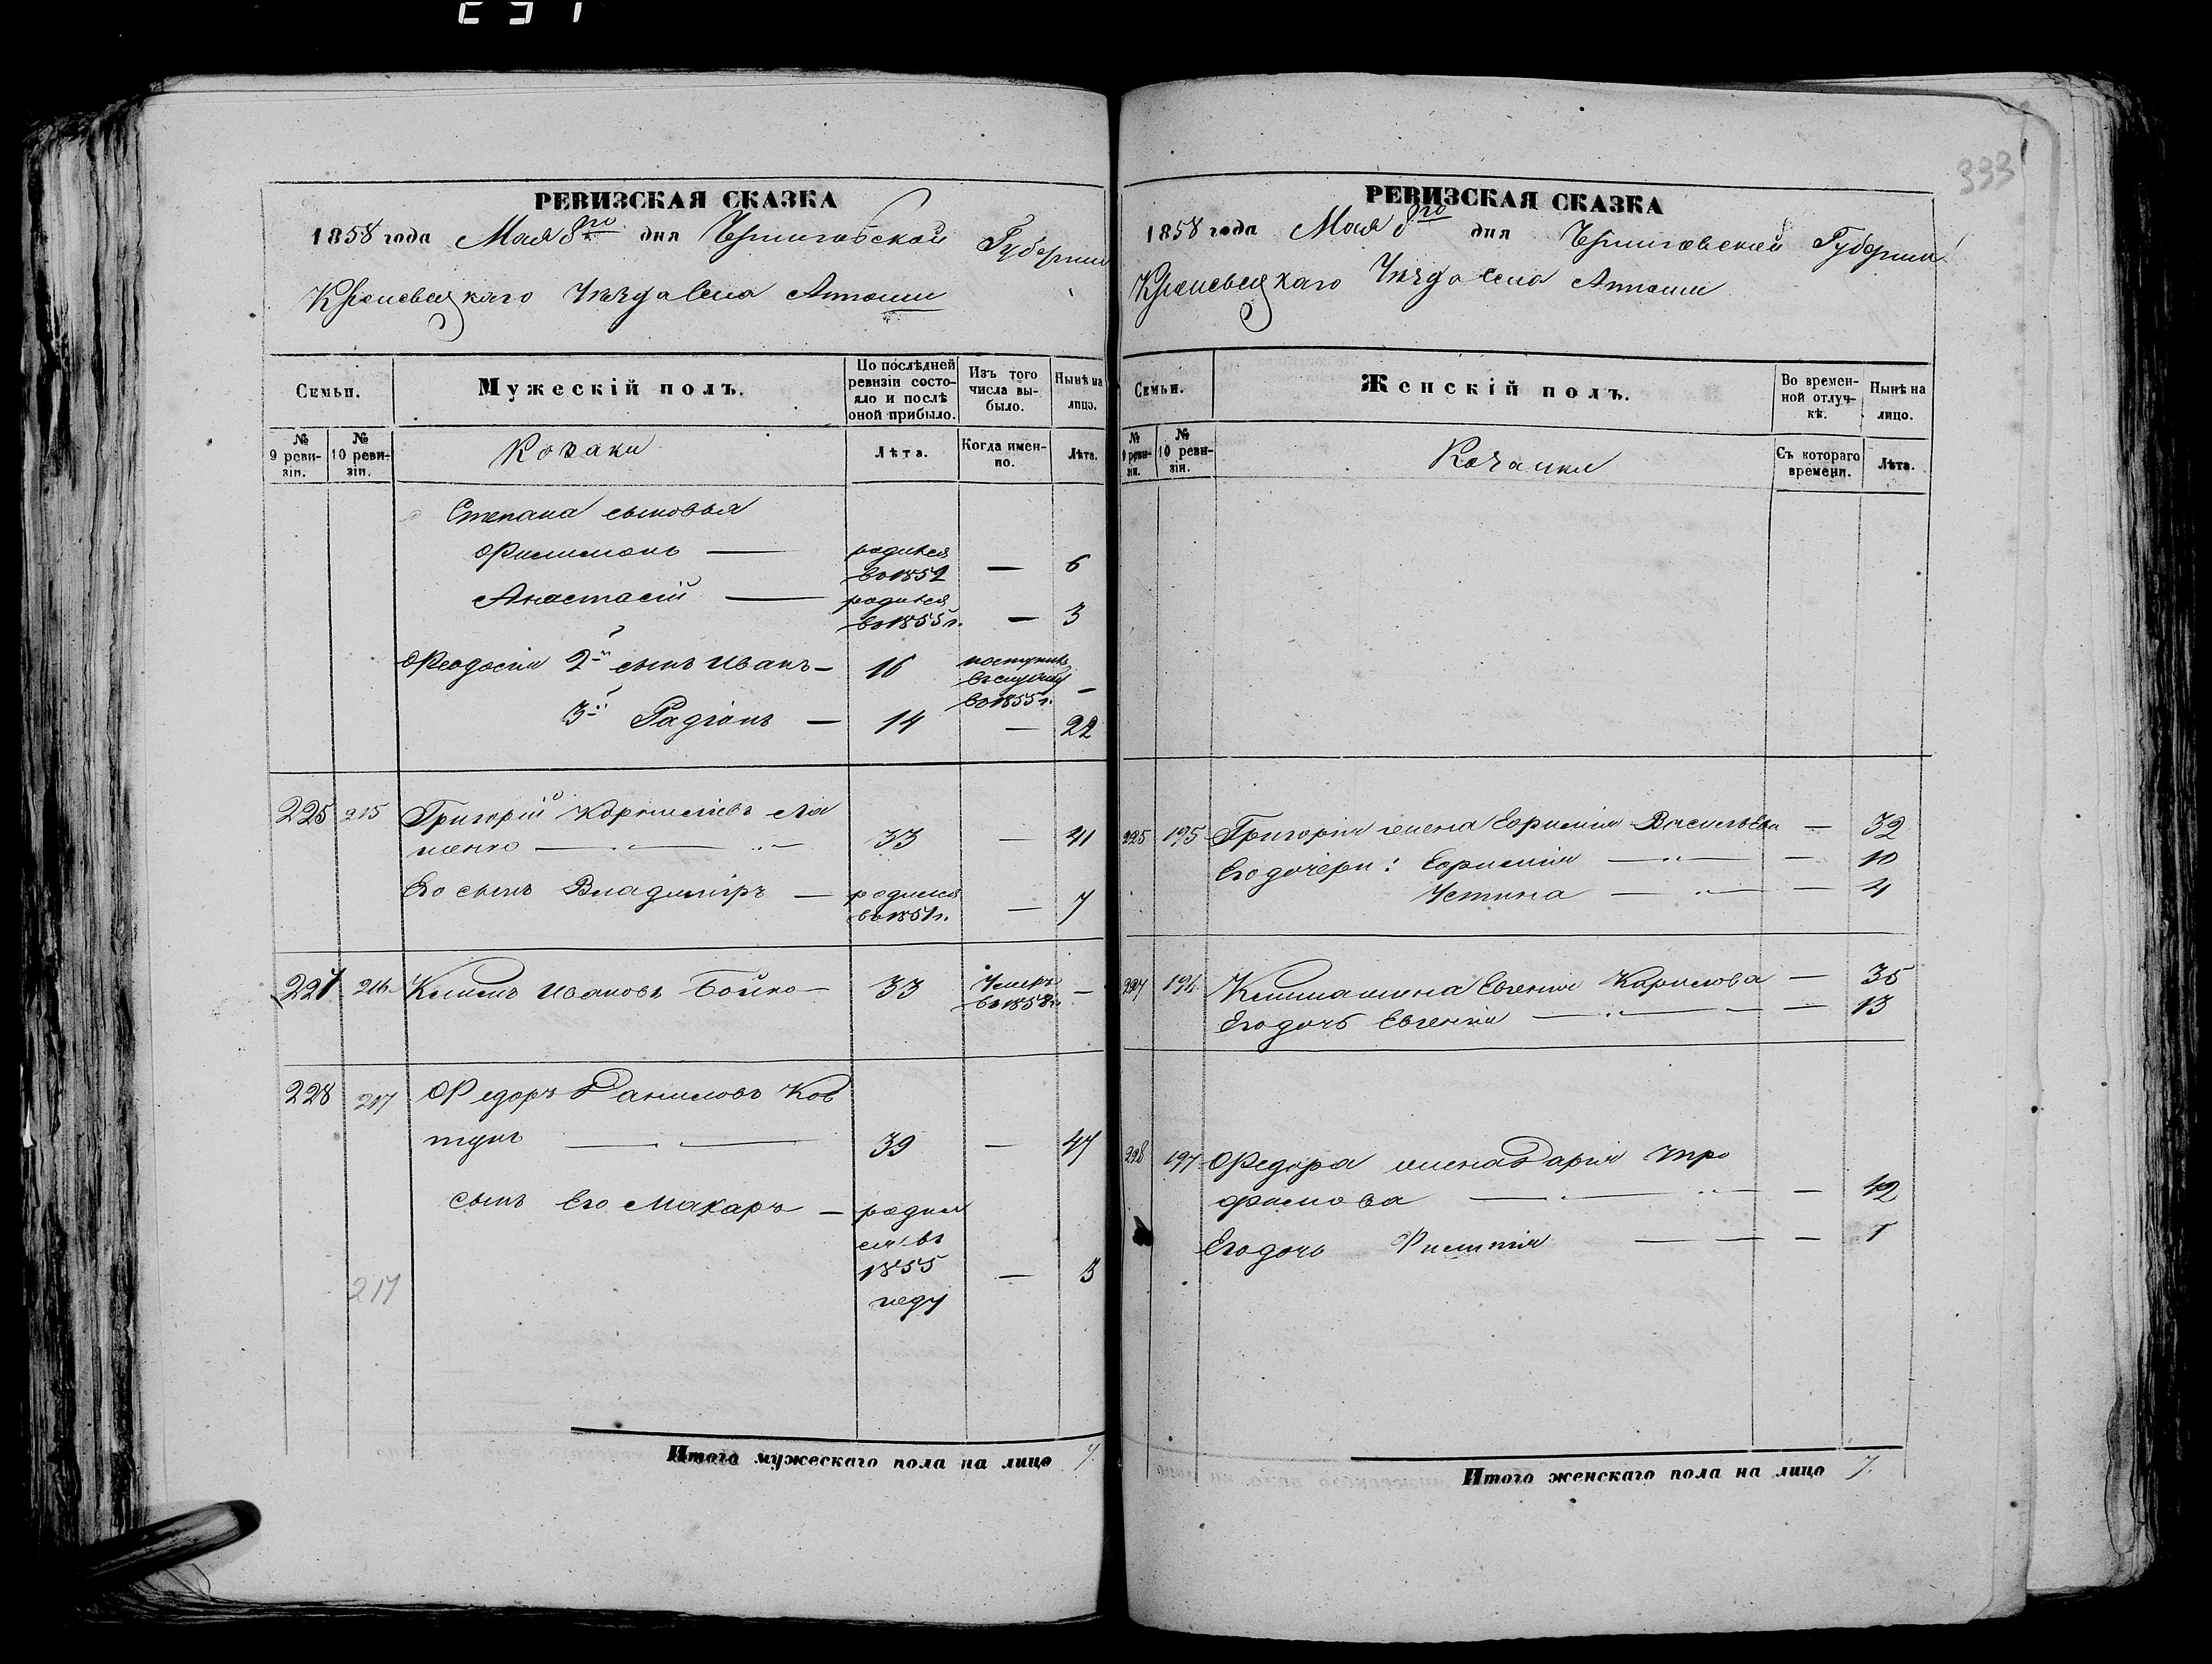 333
РЕВИЗСКАЯ СКАЗКА
1858 года Мая 8го дня Черниговской Губернии
Кролевецкаго Уезда села Атюши
Семьи.
Мужескій полъ.
По послѣдней ревизіи состояло и послѣ оной прибыло.
Изъ того числа выбыло.
Нынѣ на лицо.
№ 9 ревизіи.
№ 10 ревизіи.
Козаки
Лѣта.
Когда именно.
Лѣта.
Степана сыновья
Филимонъ — родился во 1852 — 6
Анастасій — родился во 1855 г. — 3
Феодосія 2й сынъ Иванъ — 16 поступилъ въ службу во 1855 г. —
3й Радіонъ — 14 — 22
225 215 Григорій Корнилиевъ Ля
шенко — 33 — 41
Его сынъ Владиміръ — родился во 1851 г. — 7
227 216 Климъ Ивановъ Бойко — 33 Умеръ въ 1858 г. —
228 217 Федоръ Даниловъ Ков
тунъ — 39 — 47
сынъ Его Макаръ — родил
ся въ
1855 — 3
году
217
Итого мужескаго пола на лицо 7.
РЕВИЗСКАЯ СКАЗКА
1858 года Мая 8го дня Черниговской Губернии
Кролевецкаго Уезда села Атюши
Семьи.
Женскій полъ.
Во временной отлучкѣ.
Нынѣ на лицо.
№ 9 ревизіи.
№ 10 ревизіи.
Козачки
Съ котораго времени.
Лѣта.
225 195 Григорія жена Ефимія Васильева — 32
Его дочери: Ефимія — 10
Устина — 4
227 196 Клима жена Евгенія Карпова — 35
Его дочь Евгенія — 13
228 197 Федора жена Дарія Тро
фимова — 42
Его дочь — 1
Итого женскаго пола на лицо 7.